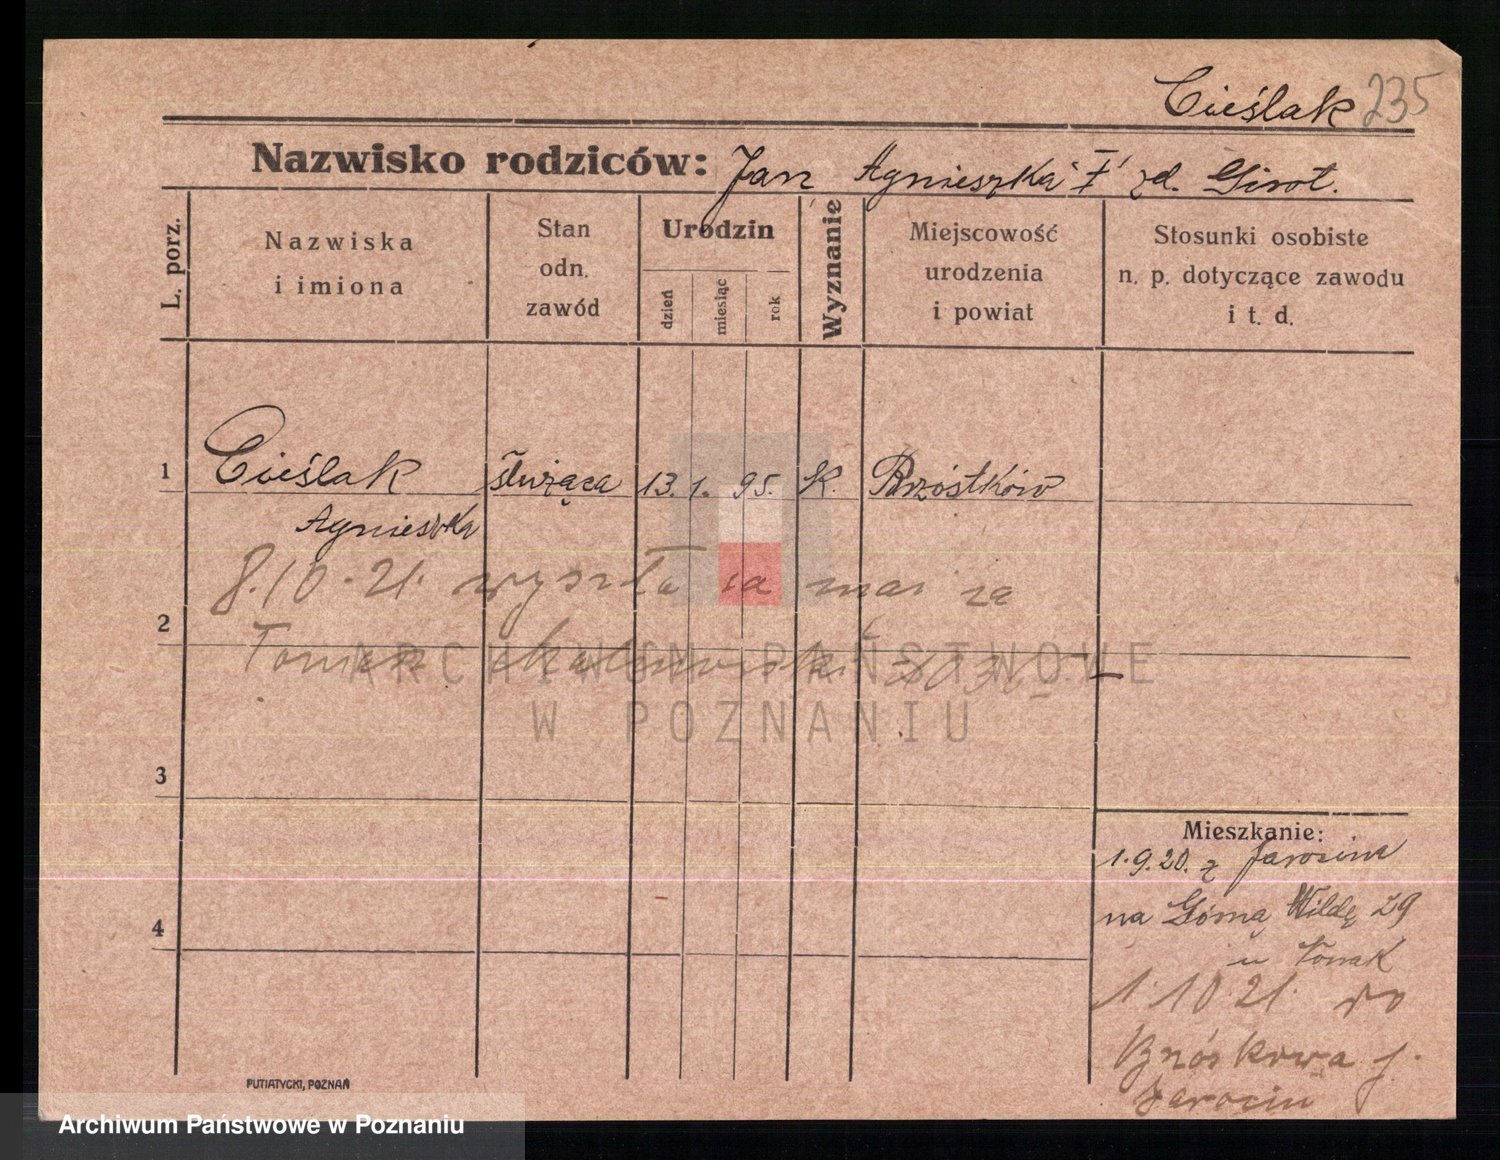 Cieślak 235
Nazwisko rodziców: Jan Agnieszka zd. Girot.
L. porz.
Nazwiska
i imiona
Stan
odn.
zawód
Urodzin
dzień
miesiąc
rok
Wyznanie
Miejscowość
urodzenia
i powiat
Stosunki osobiste
n. p. dotyczące zawodu
i t. d.
1 Cieślak służąca 13. 1. 95. K. Brzóstków
Agnieszka
8.10.21. wyszła za mąż za
2
Tomasz
3
Mieszkanie:
1.9.20. z Jarocina
na Górną Wildę 29
u
4
1.10.21. do
Jarocin
PUTIATYCKI, POZNAŃ
ARCHIWUM PAŃSTWOWE
W POZNANIU
Archiwum Państwowe w Poznaniu